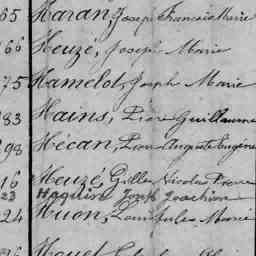 65 Haran, Joseph Francois Marie
66 Heuzé, Joseph Marie
75 Hamelot, Joseph Marie
83 Hains, Pierre Guillaume
98 Hécan, Auguste Eugène
16 Heuzé, Gilles Nicolas Pierre
23 Haquin Joseph Joachim
24 Huon, Louis Jules Marie